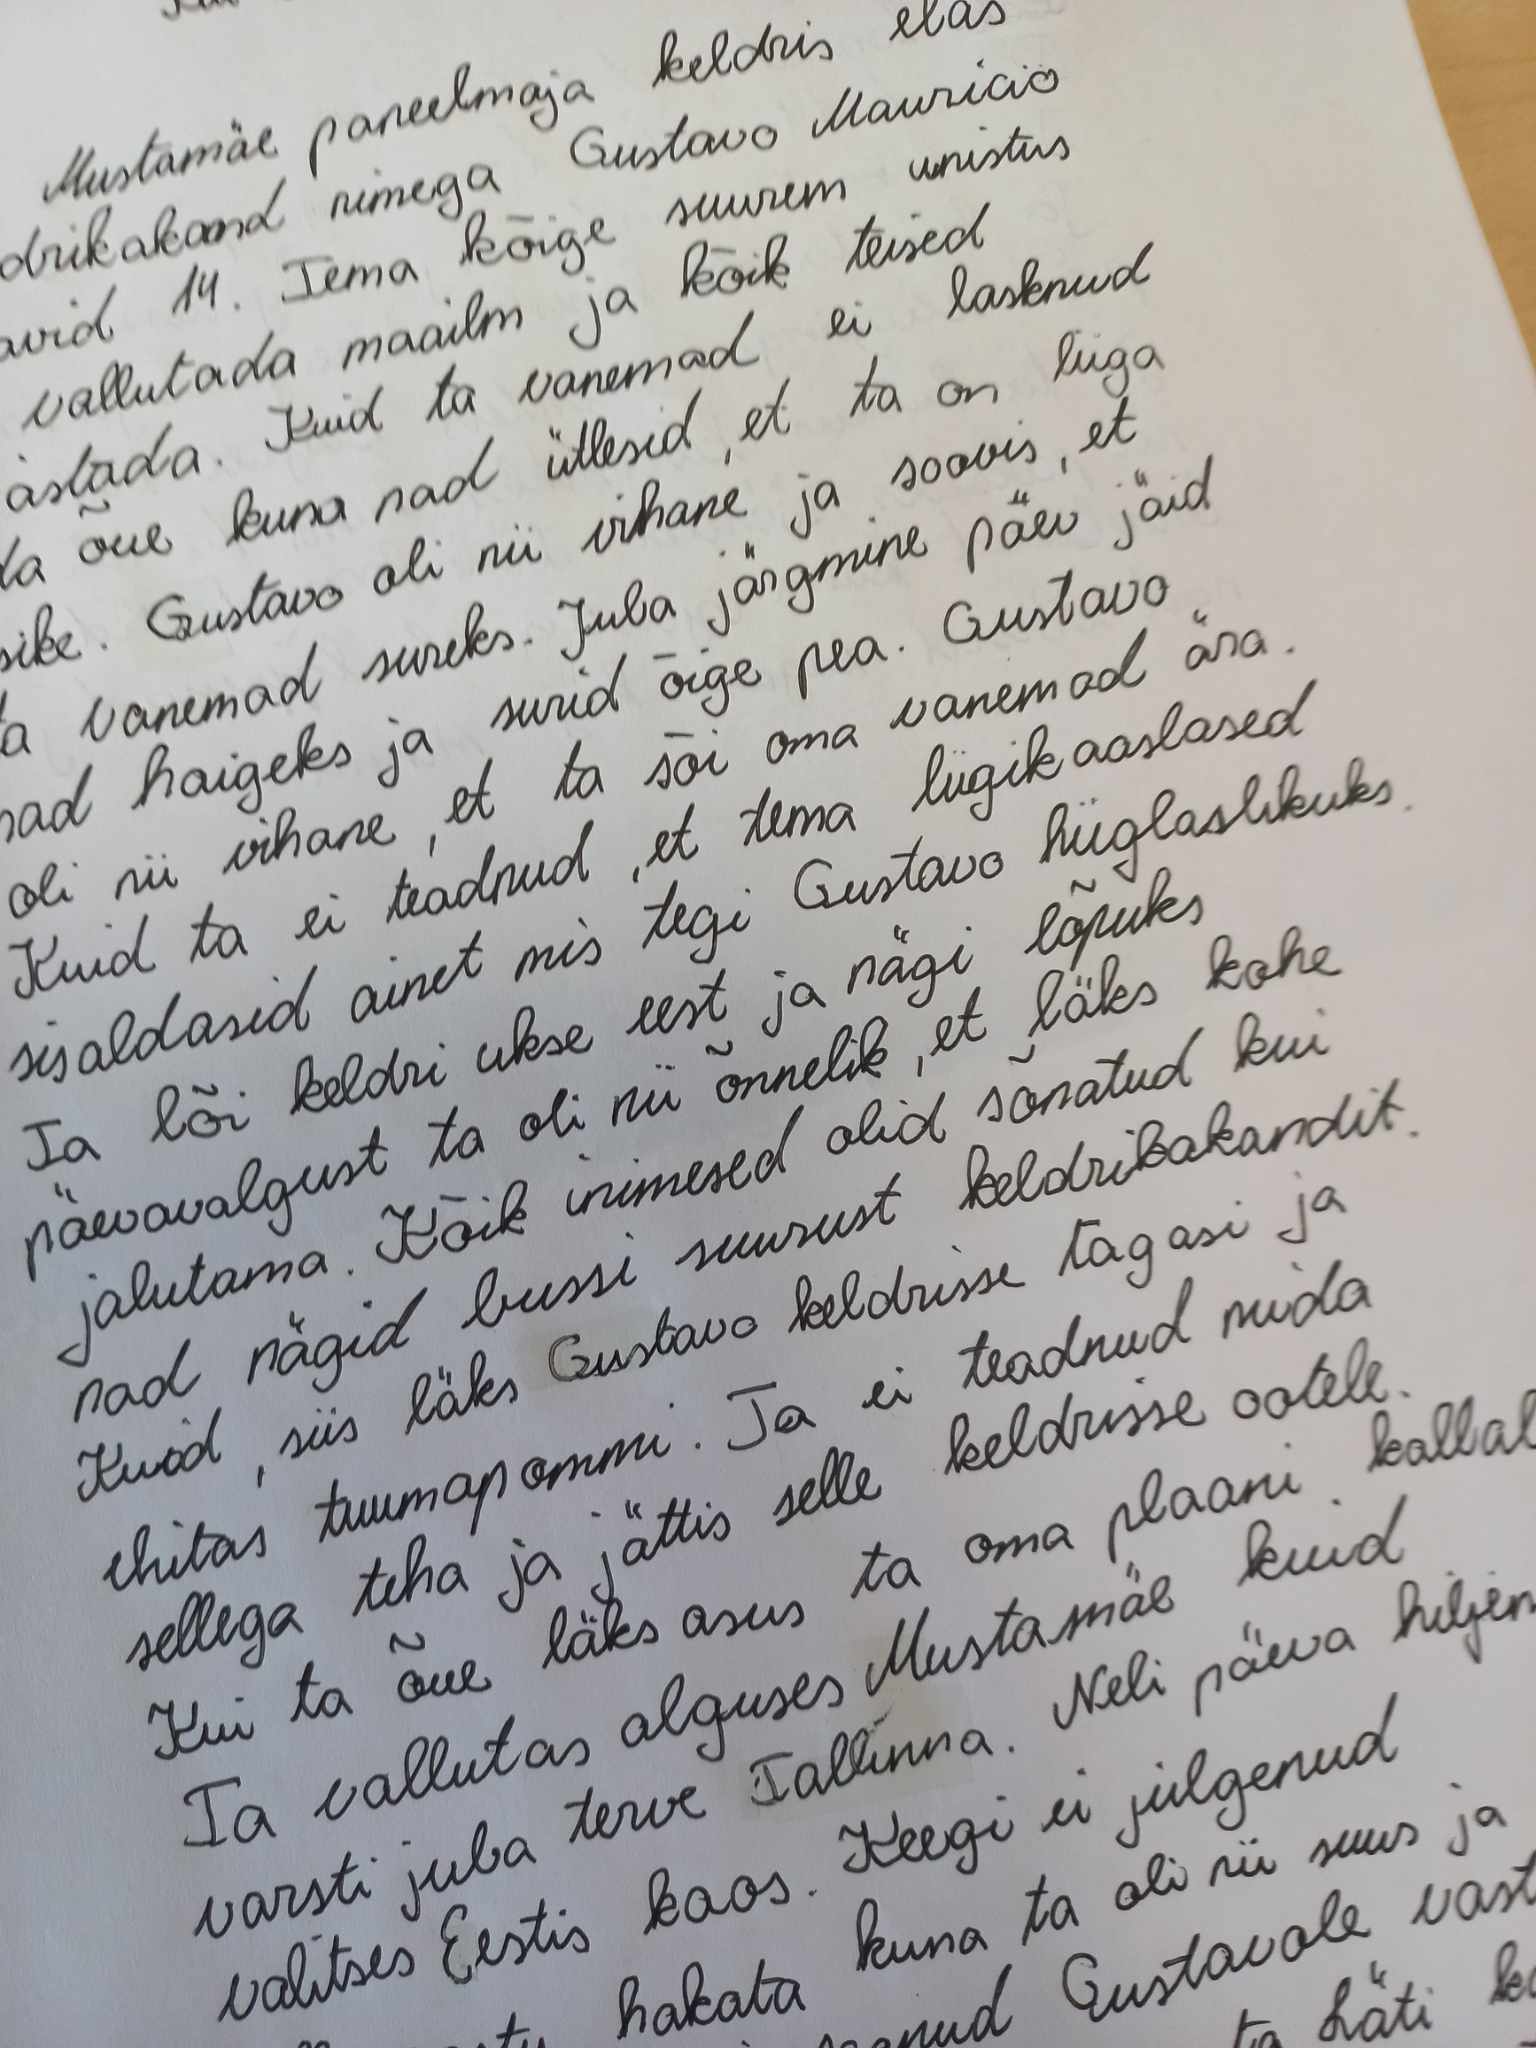 Mustamäe paneelmaja keldris elas
drikakand nimega Gustavo Mauricio
avid 14. Tema kõige suurem unistus
vallutada maailm ja kõik teised
astada. Kuid ta vanemad ei lasknud
da õue kuna nad ütlesid, et ta on liiga
sike. Gustavo oli nii vihane ja soovis, et
ta vanemad sureks. Juba järgmine päev jäid
nad haigeks ja surid õige pea. Gustavo
oli nii vihane, et ta sõi oma vanemad ära.
Kuid ta ei teadnud, et tema liigikaaslased
sisaldasid ainet mis tegi Gustavo hiiglaslikuks.
Ta lõi keldri ukse eest ja nägi lõpuks
päevavalgust ta oli nii õnnelik, et läks kohe
jalutama. Kõik inimesed olid sõnatud kui
nad nägid bussi suurust keldrikakandit.
Kuid, siis läks Gustavo keldrisse tagasi ja
ehitas tuumapommi. Ta ei teadnud mida
sellega teha ja jättis selle keldrisse ootele.
Kui ta õue läks asus ta oma plaani kallal
Ta vallutas alguses Mustamäe kuid
varsti juba terve Tallinna. Neli päeva hiljem
valitses Eestis kaos. Keegi ei julgenud
hakata kuna ta oli nii suur ja
Gustavole vast
ta häti